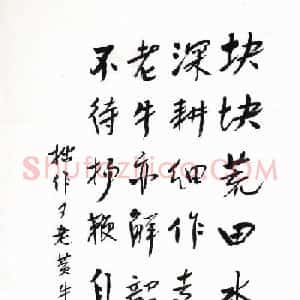 块块荒田水
深耕细作走
老牛亦解韶
不待扬鞭自
拙作了老黄牛
Shufazhiao.com